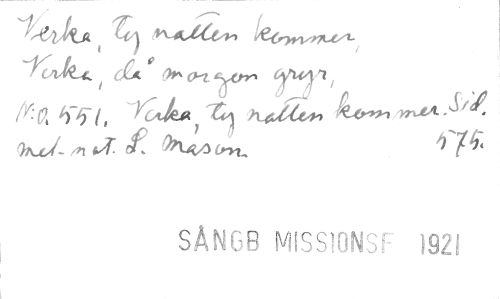 Verka, ty natten kommer,
Verka, då morgon gryr,
N:o. 551. Verka, ty natten kommer. Sid.
mel. not. L. Mason. 575.
SÅNGB MISSIONSF 1921